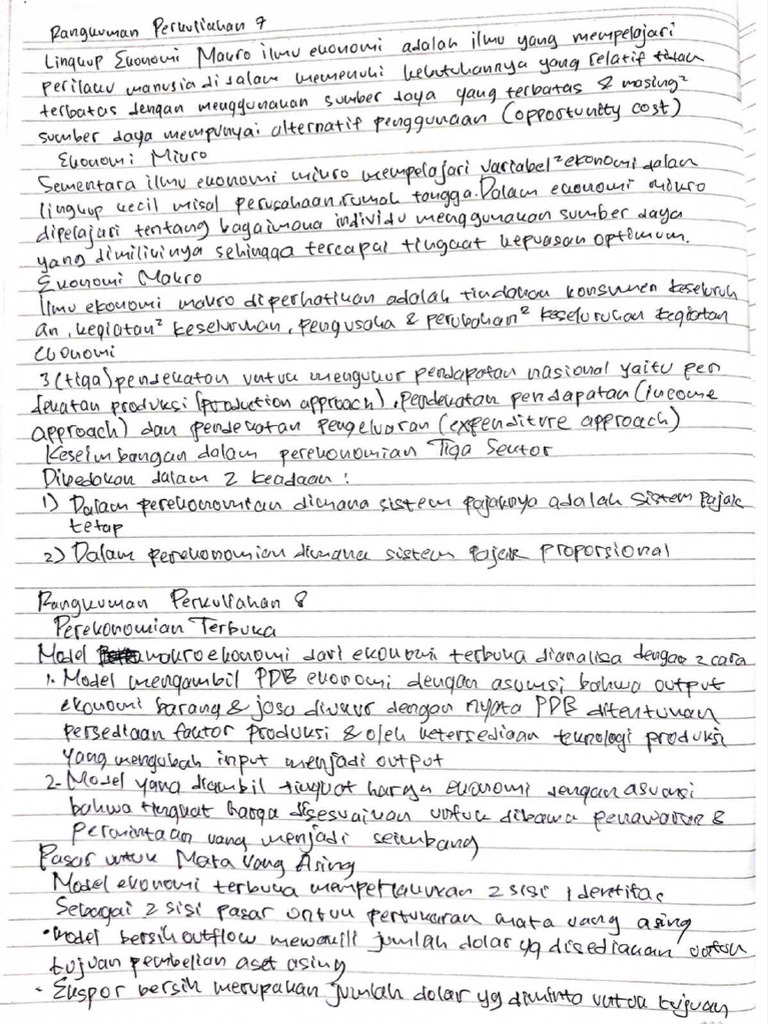 Rangkuman Perkuliahan 7
Lingkup Ekonomi Makro ilmu ekonomi adalah ilmu yang mempelajari
perilaku manusia di dalam memenuhi kebutuhannya yang relatif tidak
terbatas dengan menggunakan sumber daya yang terbatas & masing²
sumber daya mempunyai alternatif penggunaan (opportunity cost)
Ekonomi Mikro
Sementara ilmu ekonomi mikro mempelajari variabel² ekonomi dalam
lingkup kecil misal perusahaan, rumah tangga. Dalam ekonomi mikro
dipelajari tentang bagaimana individu menggunakan sumber daya
yang dimilikinya sehingga tercapai tingkat kepuasan optimum.
Ekonomi Makro
Ilmu ekonomi makro diperhatikan adalah tindakan konsumen keseluruh
an, kegiatan² keseluruhan, pengusaha & perubahan² keseluruhan kegiatan
ekonomi
3 (tiga) pendekatan untuk mengukur pendapatan nasional yaitu pen
dekatan produksi (production approach), pendekatan pendapatan (income
approach) dan pendekatan pengeluaran (expenditure approach)
Keseimbangan dalam perekonomian Tiga Sektor
Dibedakan dalam 2 keadaan :
1) Dalam perekonomian dimana sistem pajaknya adalah sistem pajak
tetap
2) Dalam perekonomian dimana sistem pajak proporsional
Rangkuman Perkuliahan 8
Perekonomian Terbuka
Model makroekonomi dari ekonomi terbuka dianalisa dengan 2 cara
1. Model mengambil PDB ekonomi dengan asumsi bahwa output
ekonomi barang & jasa diukur dengan nyata PDB ditentukan
persediaan faktor produksi & oleh ketersediaan teknologi produksi
yang mengubah input menjadi output
2. Model yang diambil tingkat harga ekonomi dengan asumsi
bahwa tingkat harga disesuaikan untuk dibawa penawaran &
permintaan uang menjadi seimbang
Pasar untuk Mata Uang Asing
Model ekonomi terbuka memperlakukan 2 sisi identitas
Sebagai 2 sisi pasar untuk pertukaran mata uang asing
• Model bersih outflow mewakili jumlah dolar yg disediakan untuk
tujuan pembelian aset asing
- Ekspor bersih merupakan jumlah dolar yg diminta untuk tujuan